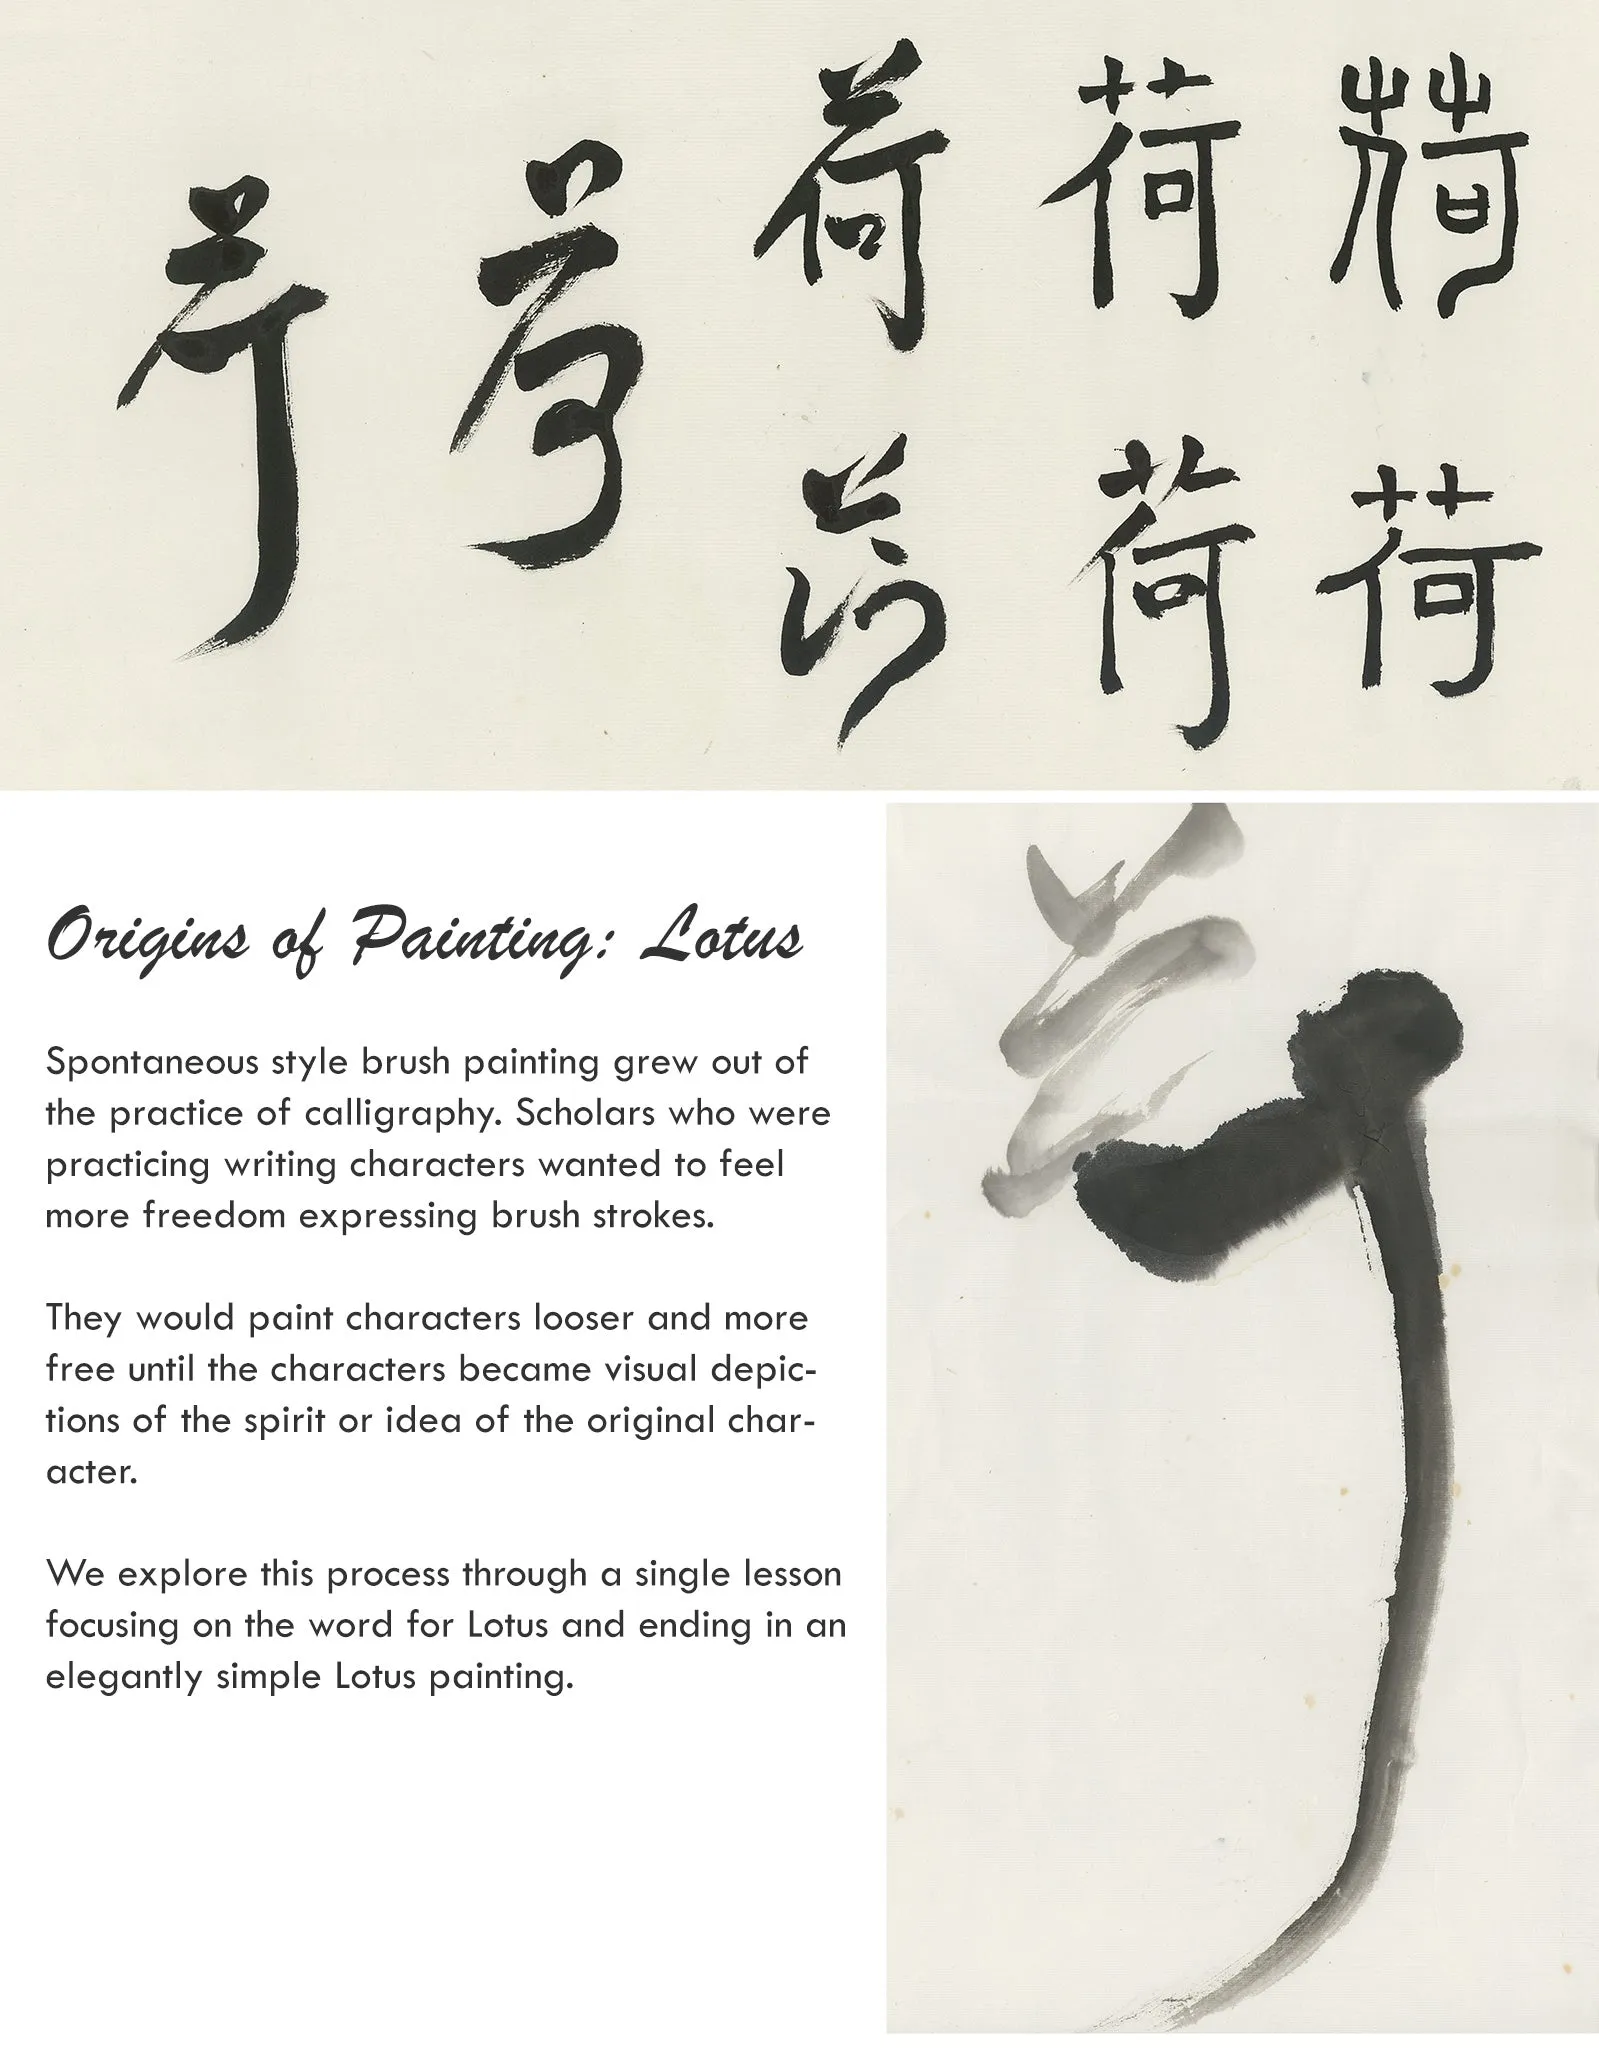 荷
荷
荷
荷
荷
荷
荷
荷
Origins of Painting: Lotus
Spontaneous style brush painting grew out of
the practice of calligraphy. Scholars who were
practicing writing characters wanted to feel
more freedom expressing brush strokes.
They would paint characters looser and more
free until the characters became visual depic-
tions of the spirit or idea of the original char-
acter.
We explore this process through a single lesson
focusing on the word for Lotus and ending in an
elegantly simple Lotus painting.